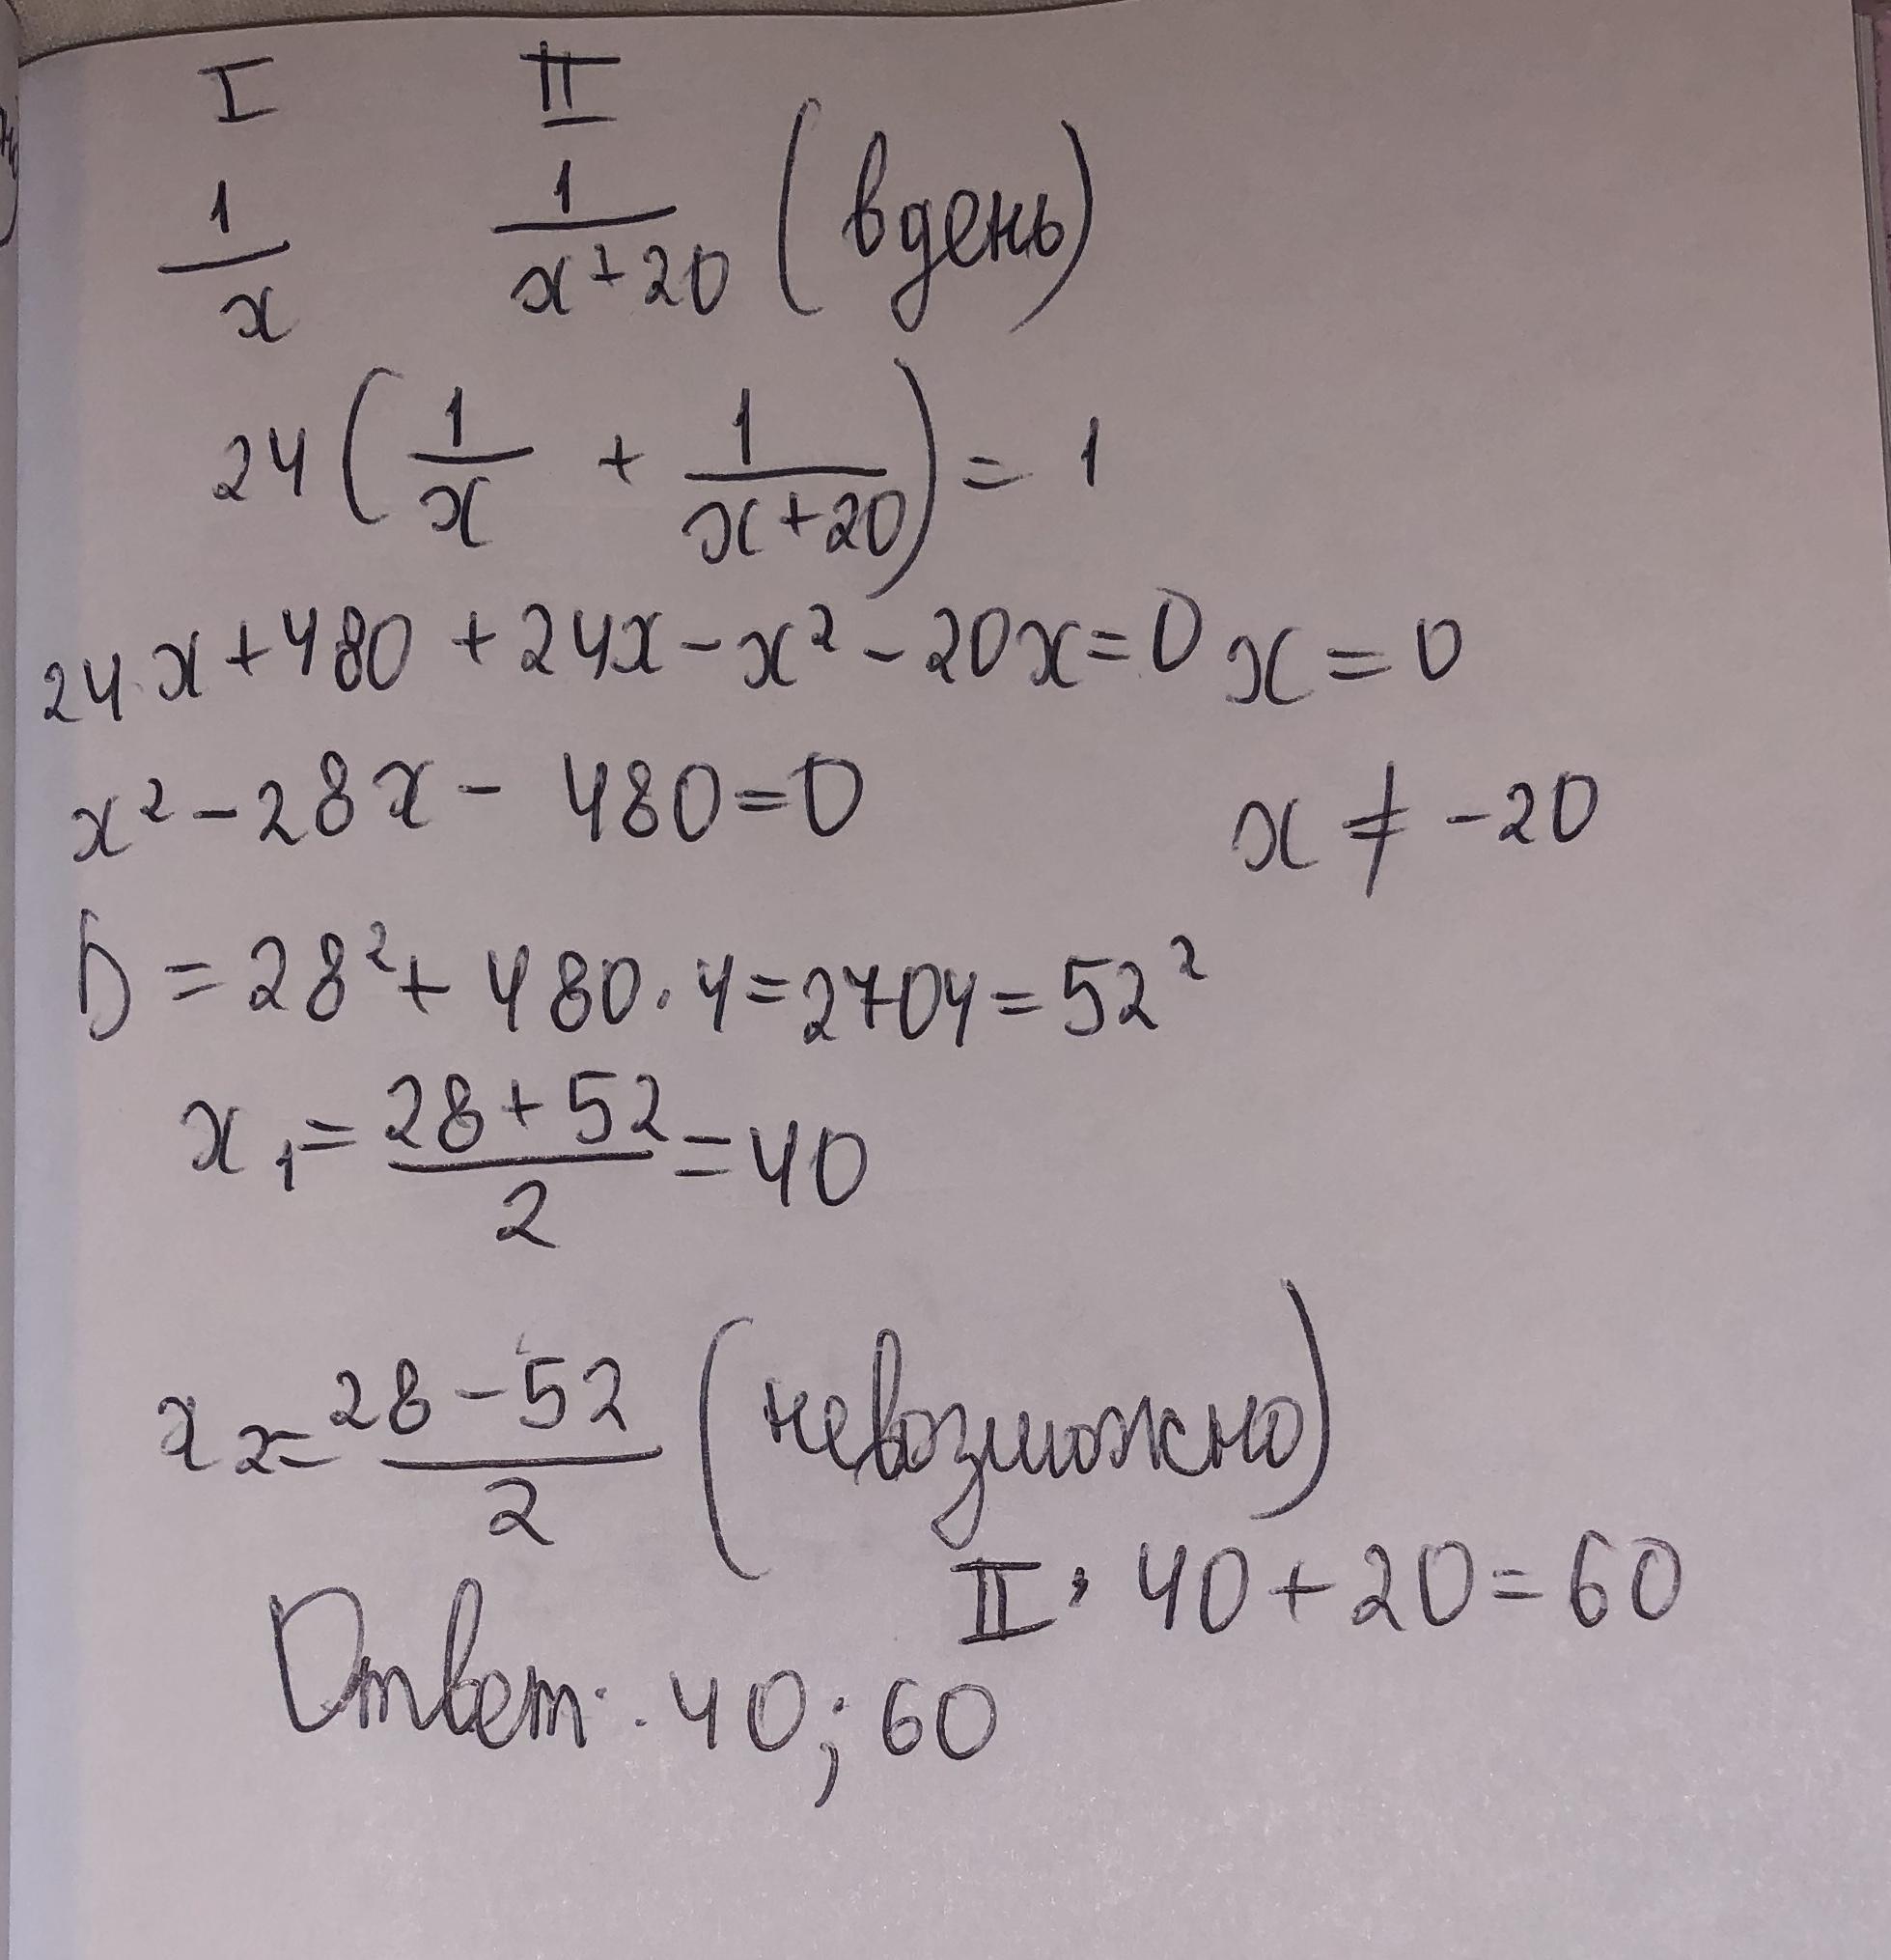 I II
1/x 1/(x+20) (в день)
24(1/x + 1/(x+20)) = 1
24x+480+24x-x²-20x=0 x=0
x²-28x-480=0 x≠-20
D=28²+480·4=2704=52²
x₁=(28+52)/2=40
x₂=(28-52)/2 (невозможно)
II: 40+20=60
Ответ: 40; 60